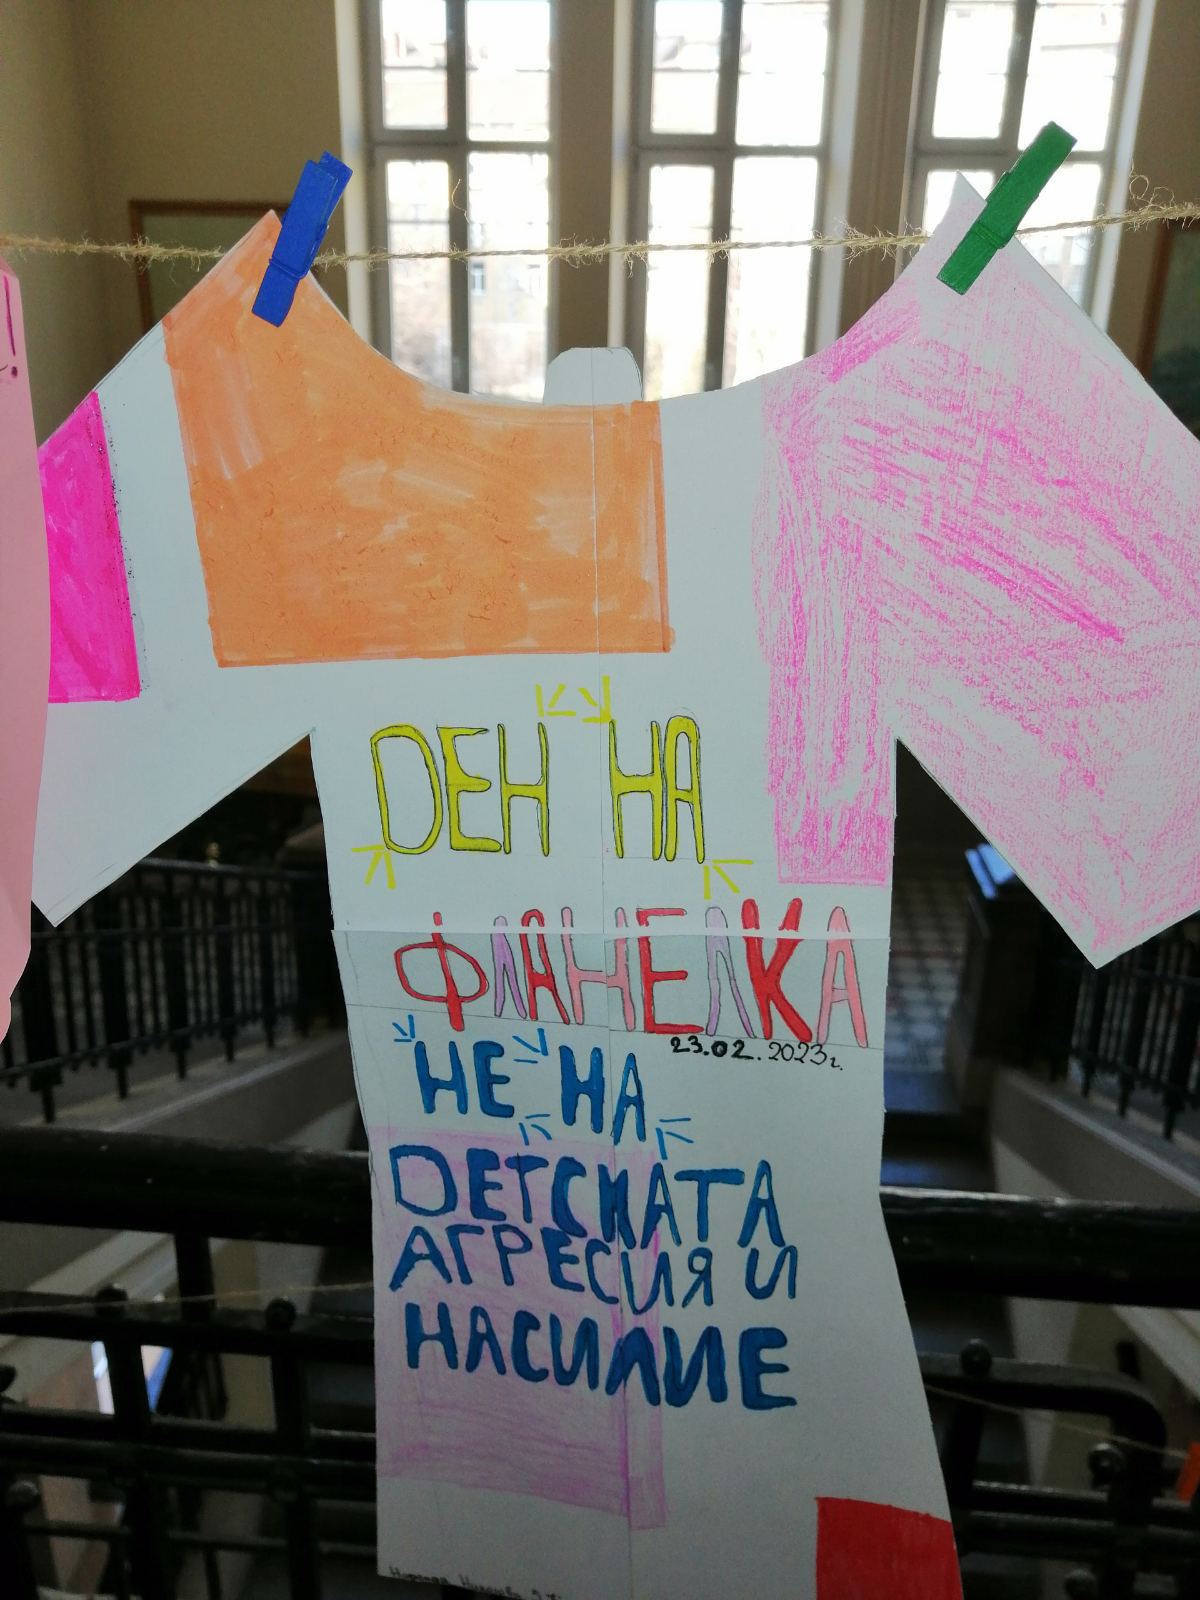 ДЕН НА
ФЛАНЕЛКА
23.02.2023г.
НЕ НА
ДЕТСКАТА
АГРЕСИЯ И
НАСИЛИЕ